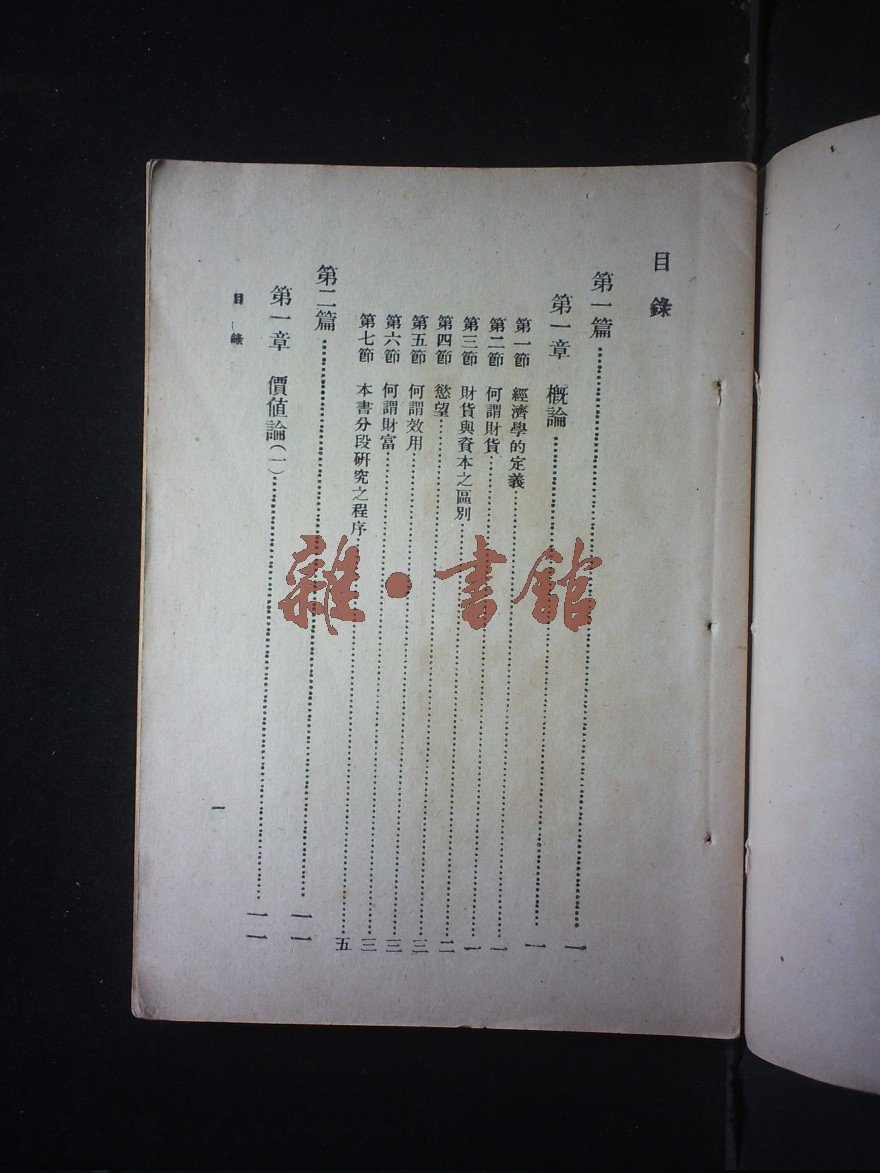 目錄
第一篇……一
第一章 概論……一
第一節 經濟學的定義……一
第二節 何謂財貨……一
第三節 財貨與資本之區別……一
第四節 慾望……二
第五節 何謂效用……三
第六節 何謂財富……三
第七節 本書分段研究之程序……五
第二篇……一一
第一章 價值論(一)……一一
目錄
一
雜·書館